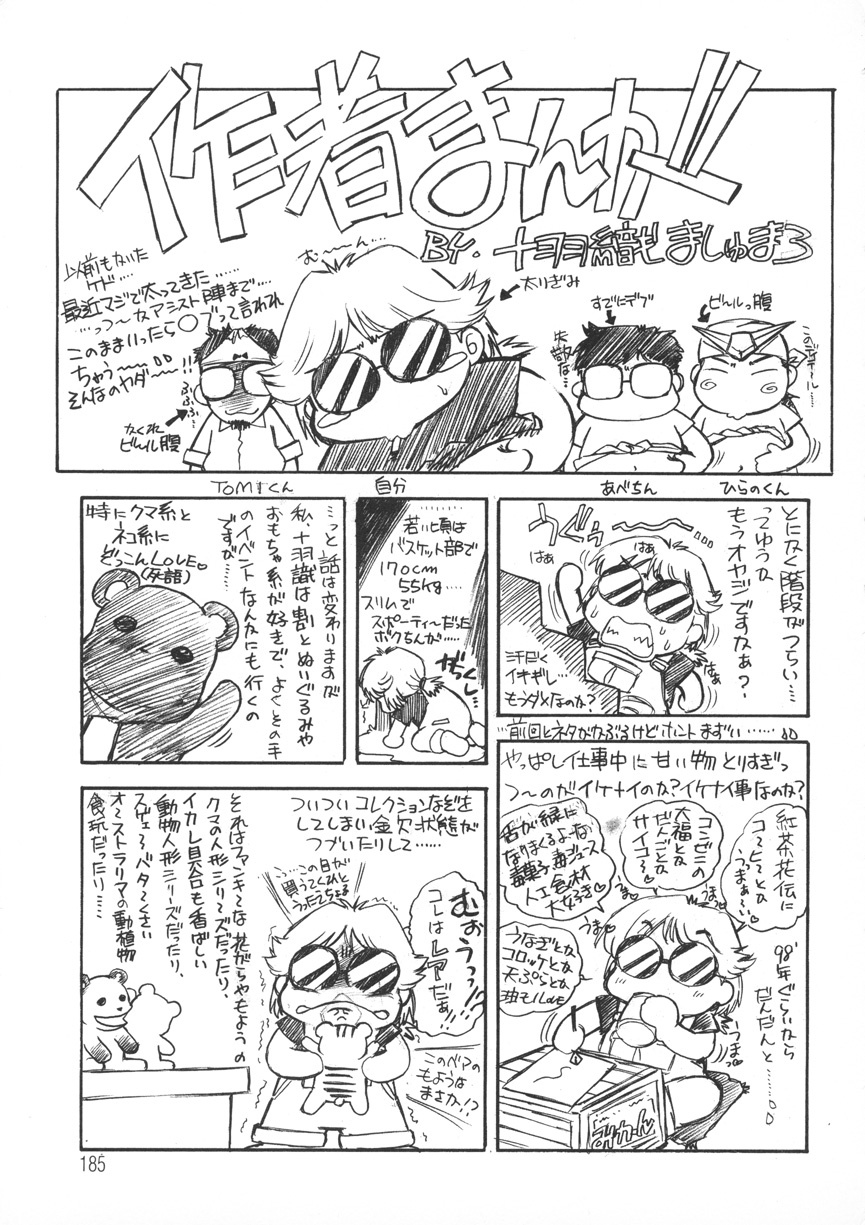 作者まんが!!
BY.十羽織ましゅまろ
以前もかいた
ケド……
最近マジで太ってきた……
…っつ〜かアシスト陣まで…
このままいったら〇ブって言われ
ちゃう〜〜
そんなのヤダ〜〜!!
む〜〜ん…
太りぎみ
すでにデブ
ビール腹
失敬な…
このディテール…
ふふふ…
かくれ
ビール腹
TOMすくん
自分
あべちん
ひらのくん
とにかく階段がつらい…
ってゆうか
もうオヤジですかぁ?
うぐぅ
はぁ
はぁ
はぁ
汗だく
イキギレ…
もうダメなのか?
若い頃は
バスケット部で
170cm
55kg……
スリムで
スポーティ〜だった
ボクちんが……
がっくし…
…っと話は変わりますが
私、十羽識は割とぬいぐるみや
おもちゃ系が好きで、よくその手
のイベントなんかにも行くの
ですが……
特にクマ系と
ネコ系に
どっこんLOVE♡
(死語)
…前回とネタがかぶるけどホントまずい……
やっぱし仕事中に甘い物とりすぎっ
つ〜のがイケナイのか?イケナイ事なのか?
紅茶花伝に
コ〜ヒ〜とか
うまぁ〜い♡
コンビニの
大福とか
だんごとか
サイコ〜♡
舌が緑に
なりまくるよ〜な
毒菓子毒ジュース
人工食材
大好き♡
うなぎとか
コロッケとか
天ぷらとか
独モノLOVE
うま♡
うま♡
うま♡
うまっ♡
98'年ぐらいから
だんだんと……
みかーん
ついついコレクションなぞを
してしまい金欠状態が
つづいたりして……
…この目が
買うてくれと
うったえちょる
むおうっっ!!
コレはレアだぁ!!
このベアの
もようは
まさか!?
それはファンキ〜な花がらやもようの
クマの人形シリ〜ズだったり、
イカレ具合も香ばしい
動物人形シリ〜ズだったり、
スゲェ〜バタ〜くさい
オ〜ストラリアの動植物
食玩だったり……
185